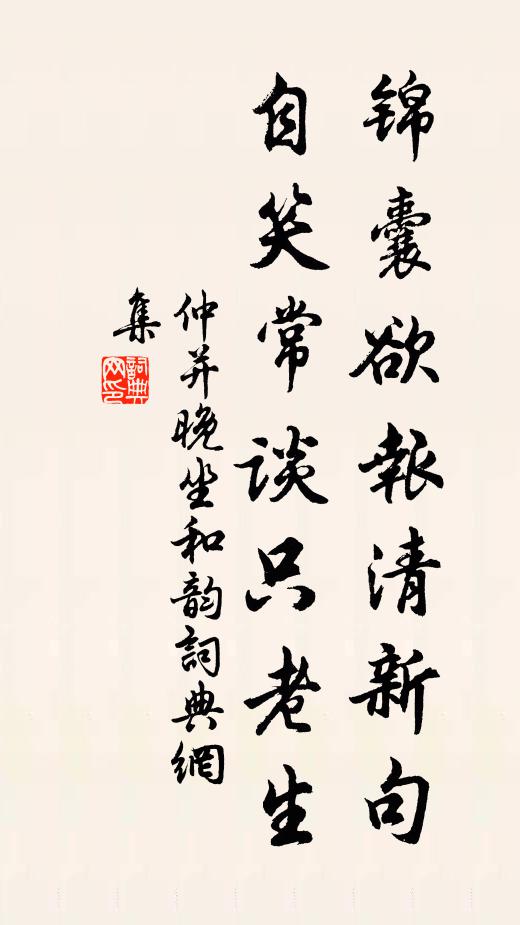 锦囊欲報清新句
自笑常談只老生
仲并晚坐和韵詞典網
集
詞典
网印